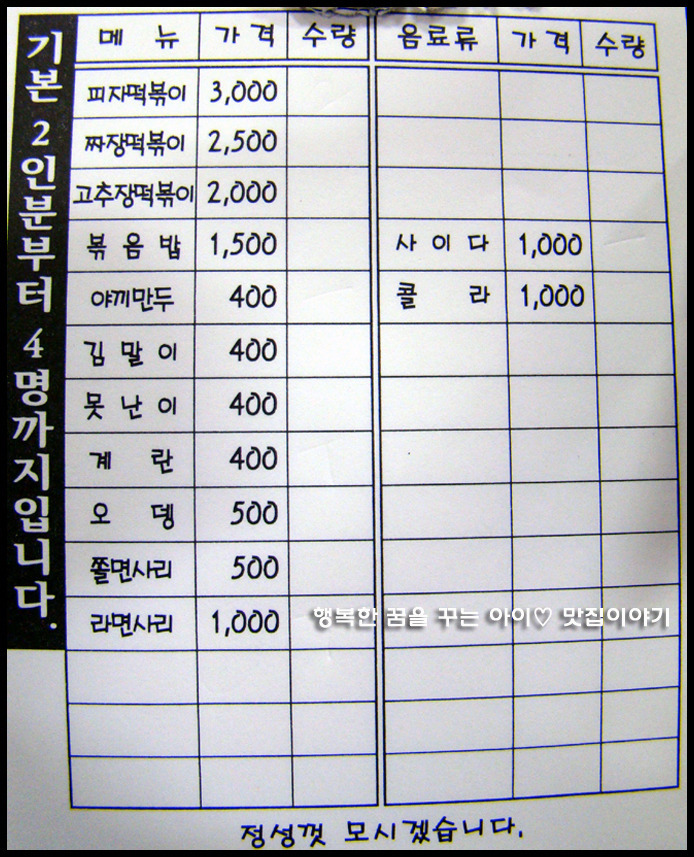 기본 2인분부터 4명까지입니다.
메 뉴 가 격 수량 음료류 가 격 수량
피자떡볶이 3,000
짜장떡볶이 2,500
고추장떡볶이 2,000
볶 음 밥 1,500 사 이 다 1,000
야끼만두 400 콜 라 1,000
김 말 이 400
못 난 이 400
계 란 400
오 뎅 500
쫄면사리 500
라면사리 1,000
행복한 꿈을 꾸는 아이♡ 맛집이야기
정성껏 모시겠습니다.